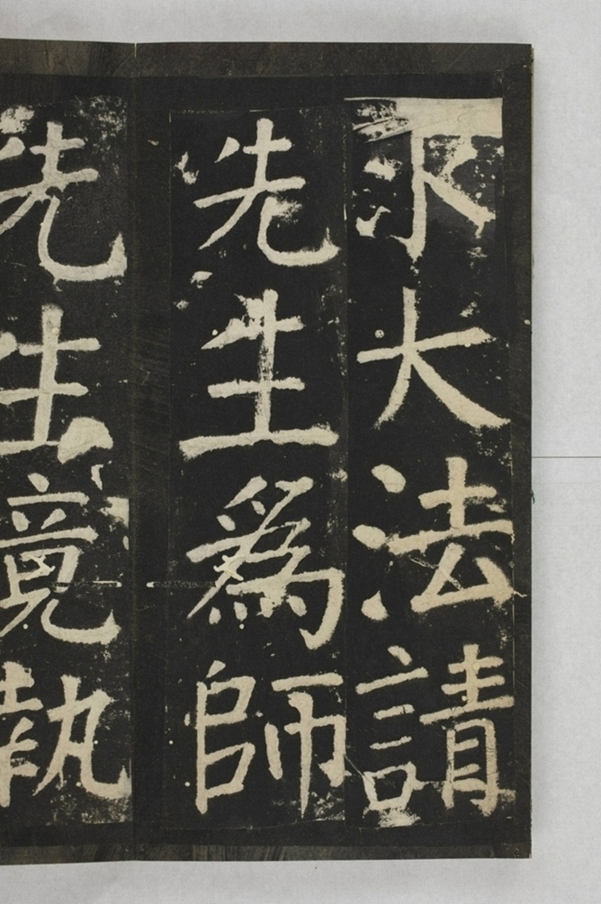 求大法請
先生爲師
先生竟執